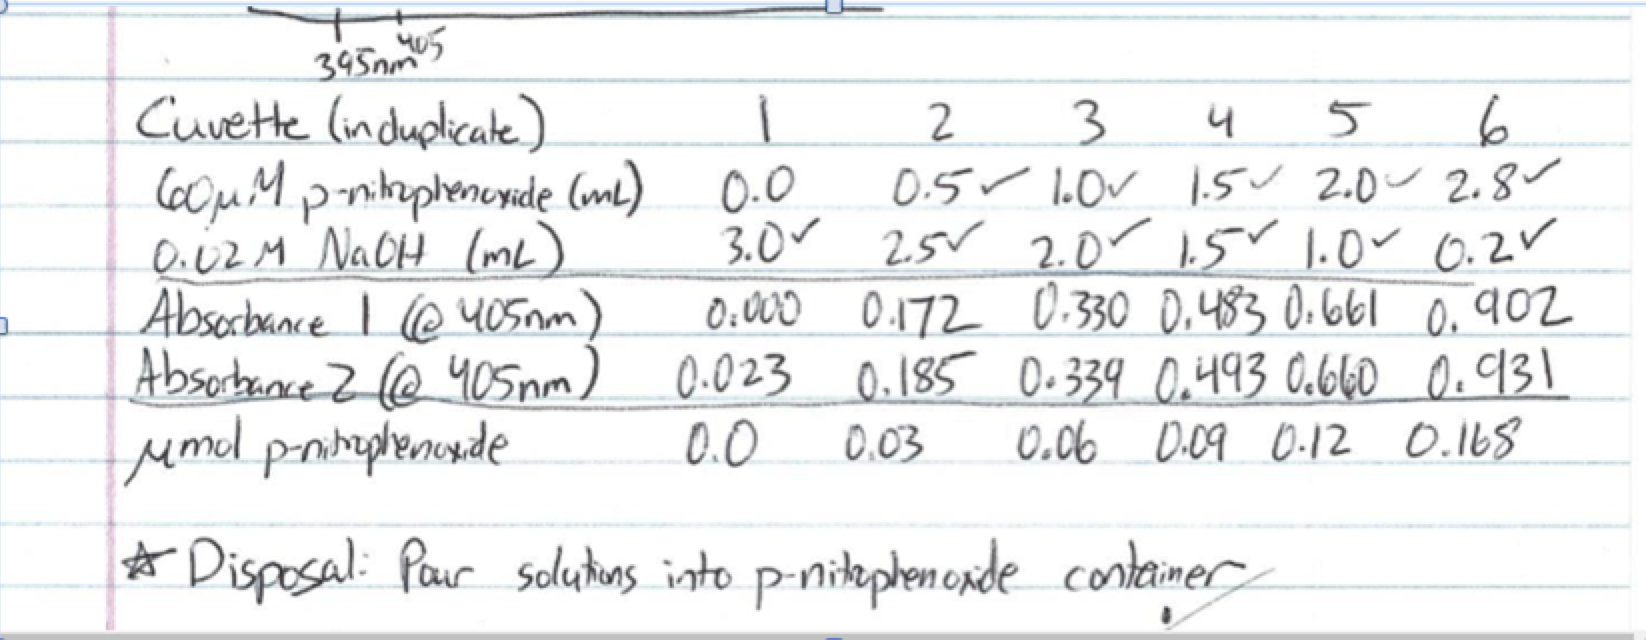 395nm 405
Cuvette (in duplicate) 1 2 3 4 5 6
60µM p-nitrophenoxide (mL) 0.0 0.5✓ 1.0✓ 1.5✓ 2.0✓ 2.8✓
0.02M NaOH (mL) 3.0✓ 2.5✓ 2.0✓ 1.5✓ 1.0✓ 0.2✓
Absorbance 1 (@ 405nm) 0.000 0.172 0.330 0.483 0.661 0.902
Absorbance 2 (@ 405nm) 0.023 0.185 0.339 0.493 0.660 0.931
µmol p-nitrophenoxide 0.0 0.03 0.06 0.09 0.12 0.168
☆ Disposal: Pour solutions into p-nitrophenoxide container